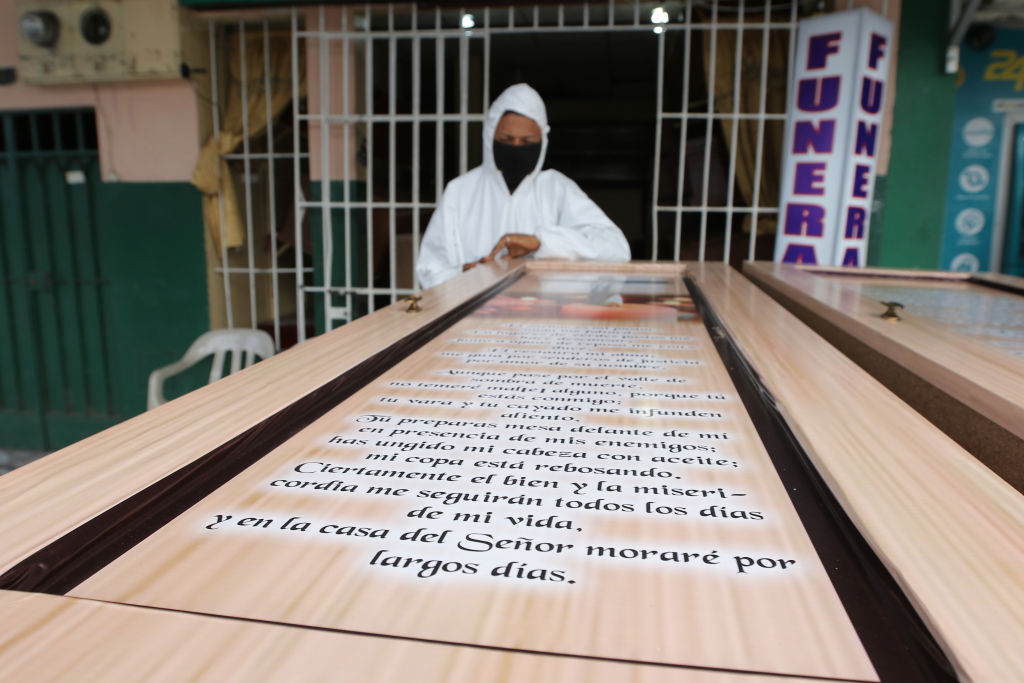 FUNERA
FUNERA
24
Aunque pase por el valle de
sombra de muerte,
no temeré mal alguno, porque tú
estás conmigo;
tu vara y tu cayado me infunden
aliento.
Tú preparas mesa delante de mi
en presencia de mis enemigos;
has ungido mi cabeza con aceite;
mi copa está rebosando.
Ciertamente el bien y la miseri-
cordia me seguirán todos los días
de mi vida,
y en la casa del Señor moraré por
largos días.